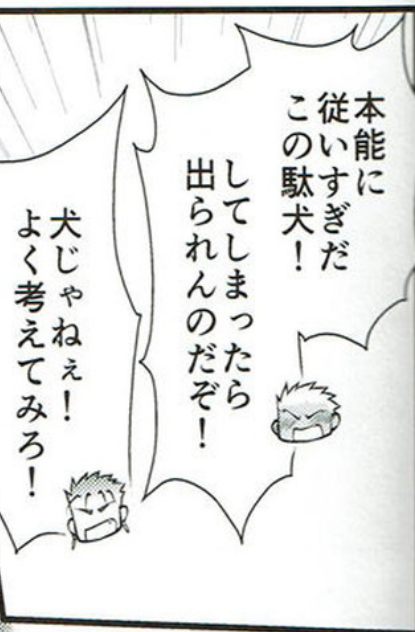 本能に
従いすぎだ
この駄犬！
してしまったら
出られんのだぞ！
犬じゃねぇ！
よく考えてみろ！